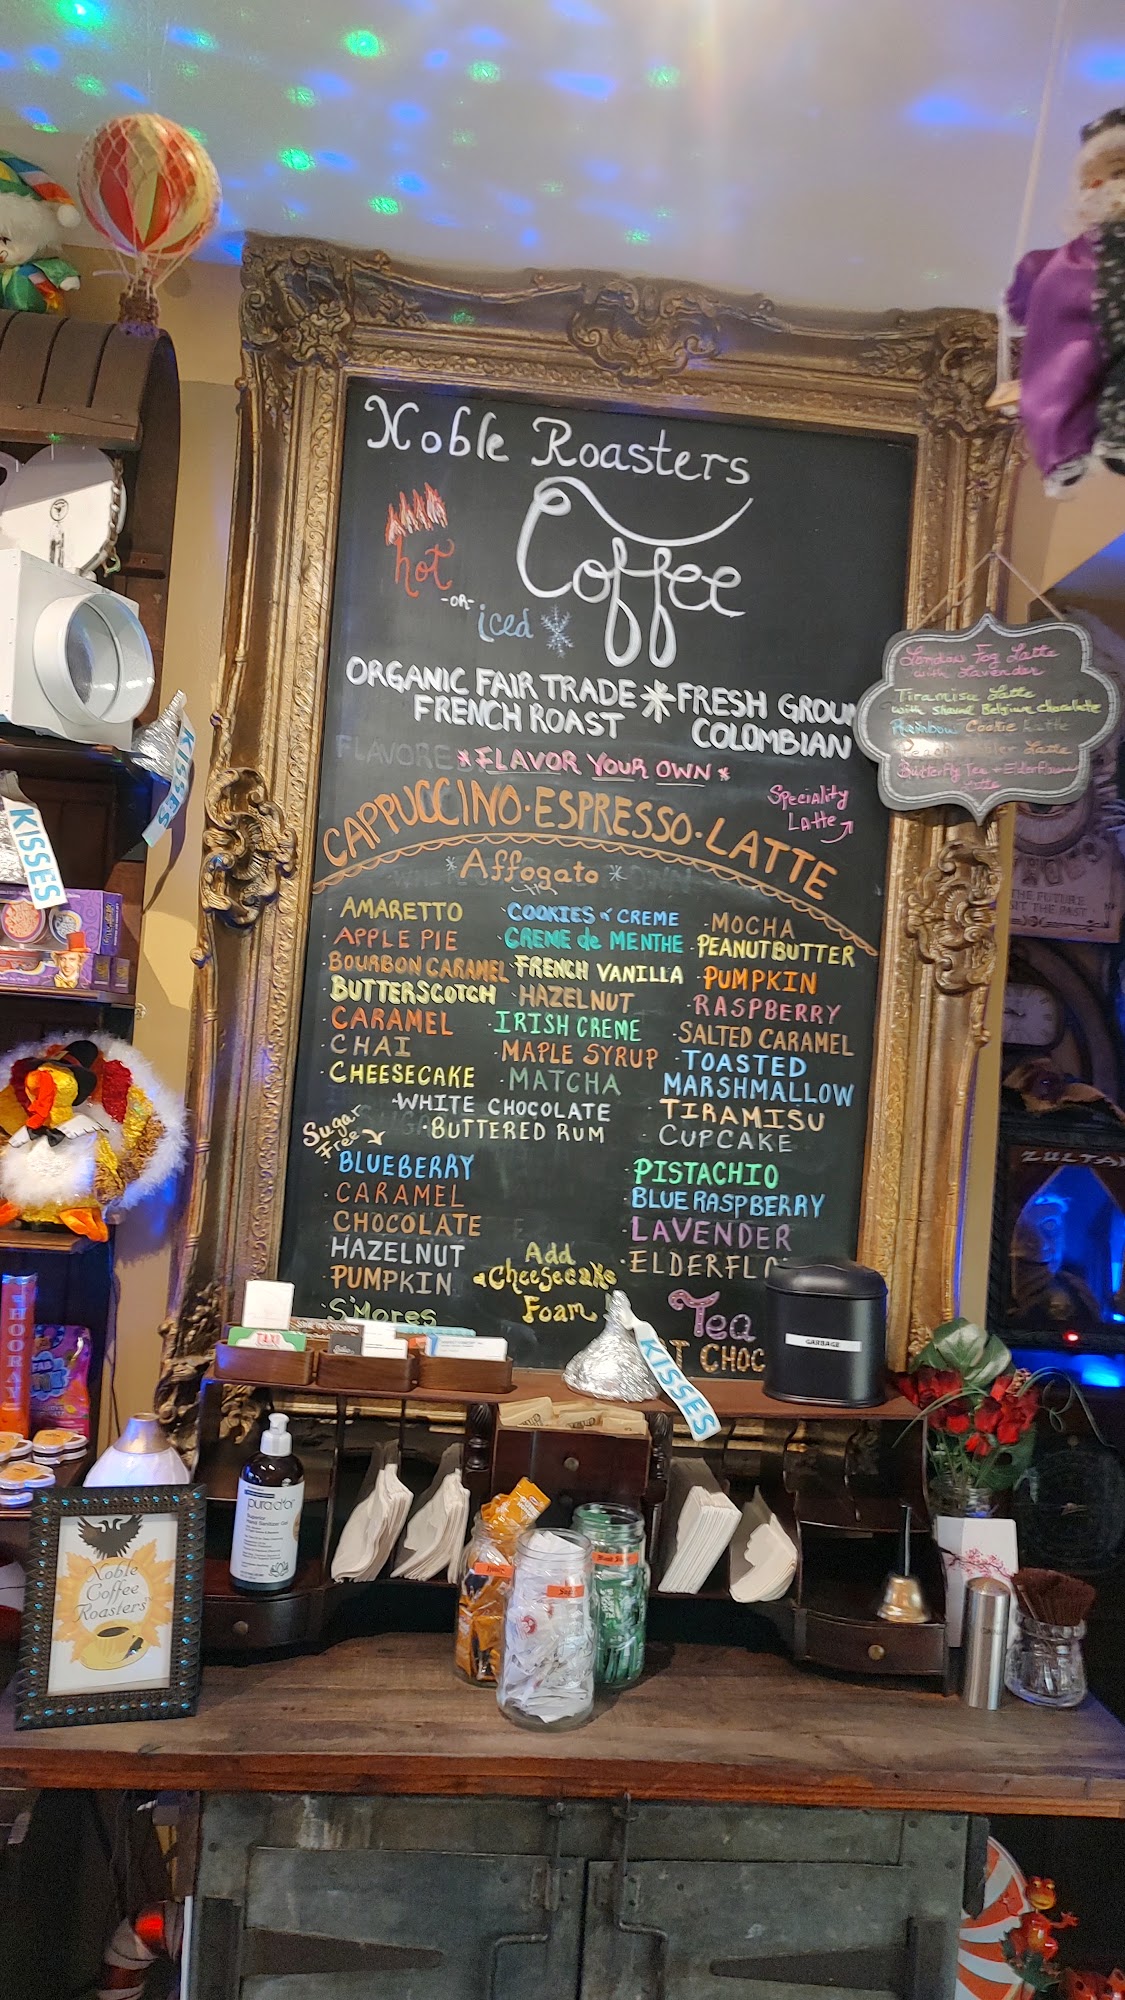 Noble Roasters
Coffee
hot
-OR-
iced
ORGANIC FAIR TRADE * FRESH GROUN
FRENCH ROAST COLOMBIAN
* FLAVOR YOUR OWN *
Speciality
Latte
CAPPUCCINO · ESPRESSO · LATTE
* Affogato *
· AMARETTO
· APPLE PIE
· BOURBON CARAMEL
· BUTTERSCOTCH
· CARAMEL
· CHAI
· CHEESECAKE
· COOKIES & CREME
· CREME de MENTHE
· FRENCH VANILLA
· HAZELNUT
· IRISH CREME
· MAPLE SYRUP
· MATCHA
· WHITE CHOCOLATE
· BUTTERED RUM
· MOCHA
· PEANUT BUTTER
· PUMPKIN
· RASPBERRY
· SALTED CARAMEL
· TOASTED
MARSHMALLOW
· TIRAMISU
· CUPCAKE
· PISTACHIO
· BLUE RASPBERRY
· LAVENDER
· ELDERFLO
Sugar
Free
· BLUEBERRY
· CARAMEL
· CHOCOLATE
· HAZELNUT
· PUMPKIN
· S'MORES
Add
Cheesecake
Foam
Tea
T CHOC
London Fog Latte
with Lavender
Tiramisu Latte
with shaved Belgian chocolate
Rainbow Cookie Latte
Latte
Butterfly Tea + Elderflower
Latte
KISSES
KISSES
KISSES
THE FUTURE
SIT THE PAST
ZULTA
HOORA
TAXI
GARBAGE
pura d'or
Superior
Noble
Coffee
Roasters